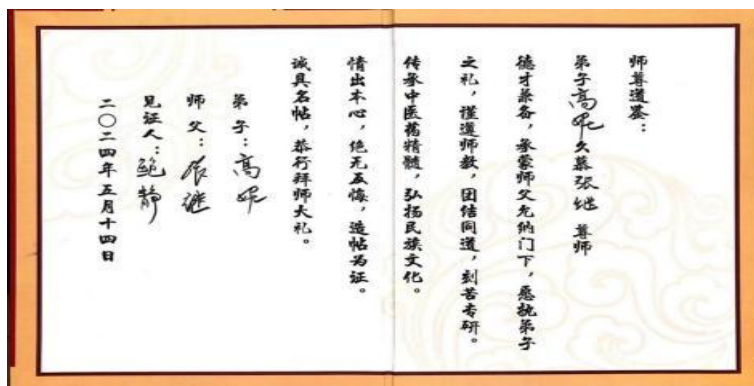 师尊道鉴：
弟子高妮久慕张继 尊师
德才兼备，承蒙师父允纳门下，愿执弟子
之礼，谨遵师教，团结同道，刻苦专研。
传承中医药精髓，弘扬民族文化。
情出本心，绝无反悔，造帖为证。
诚具名帖，恭行拜师大礼。
弟子：高妮
师父：张继
见证人：鲍静
二〇二四年五月十四日